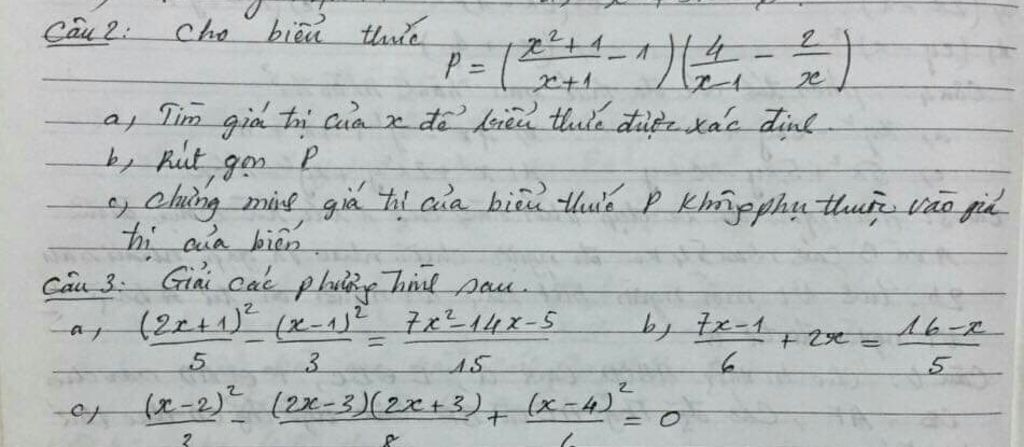 Câu 2: Cho biểu thức
P = ( \frac{x^2+1}{x+1} - 1 ) ( \frac{4}{x-1} - \frac{2}{x} )
a, Tìm giá trị của x để biểu thức được xác định.
b, Rút gọn P
c, Chứng minh giá trị của biểu thức P không phụ thuộc vào giá
trị của biến
Câu 3: Giải các phương trình sau.
a, \frac{(2x+1)^2}{5} - \frac{(x-1)^2}{3} = \frac{7x^2-14x-5}{15} b, \frac{7x-1}{6} + 2x = \frac{16-x}{5}
c, \frac{(x-2)^2}{3} - \frac{(2x-3)(2x+3)}{8} + \frac{(x-4)^2}{6} = 0